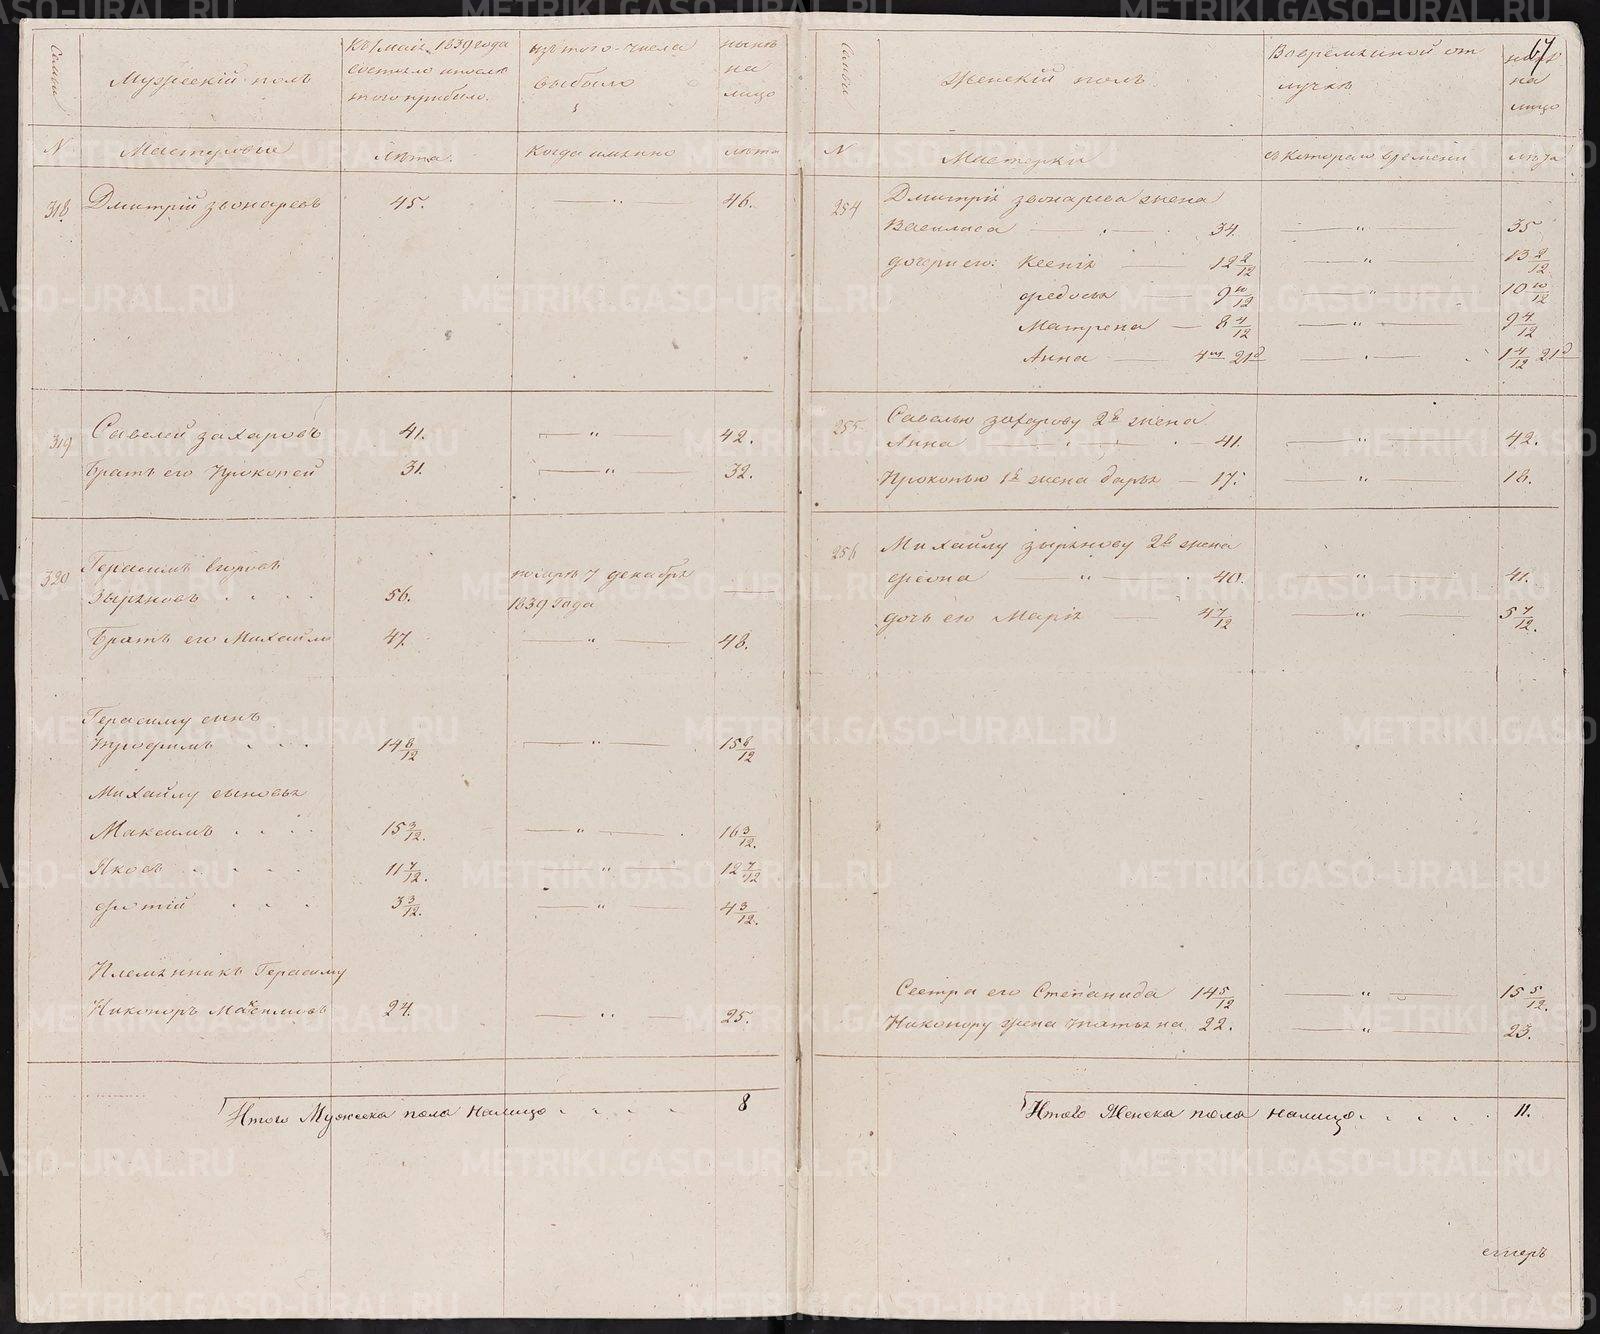 Семьи
Мужескій полъ
Къ 1 маія 1839 года
состояло и после
того прибыло.
изъ того числа
выбыло
ныне
на
лицо
N
Мастеровые
лета.
когда имянно
лета
318.
Дмитрій Звонаревъ
45.
— " —
46.
319
Савелей Захаровъ
41.
— " —
42.
братъ его Прокопей
31.
— " —
32.
320
Герасимъ
Зыряновъ . . . .
56.
7 декабря
1839 Года
Братъ его Михайло
47.
— " —
48.
Герасиму сынъ
Трофимъ . . .
14 8/12
— " —
15 8/12
Михайлу сыновья
Максимъ . . . .
15 3/12.
— " —
16 3/12.
Яковъ . . . .
11 7/12.
— " —
12 7/12
Фотій . . .
3 3/12.
— " —
4 3/12.
Племянникъ Герасиму
Никоноръ Максимовъ
24.
— " —
25.
Итого Мужеска пола налицо . . . . 8
67
Семьи
Женскій полъ
Вовремянной от
лучке
ныне
на
лицо
N
Мастерки
съ котораго времени
лета
254
Дмитрія Звонарева жена
Василиса — 34. — " — 35
дочери его: Ксенія — 12 2/12 — " — 13 2/12
Федосья — 9 10/12 — " — 10 10/12
Матрена — 8 4/12 — " — 9 4/12
Анна — 4м 21д — " — 1 4/12 21д
255
Савелью Захарову 2я жена
Анна — 41. — " — 42.
Прокопью 1я жена Дарья — 17. — " — 18.
256
Михайлу Зырянову 2я жена
Феона " — 40. — " — 41.
дочь его Марія — 4 7/12 — " — 5 7/12.
Сестра его Степанида 14 5/12 — " — 15 5/12.
Никонору жена Татьяна 22. — " — 23.
Итого Женска пола налицо . . . . . 11.